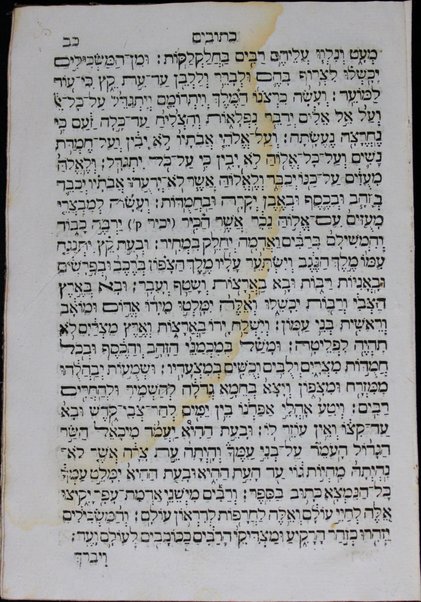 כתובים כב
מעט ונלוו עליהם רבים בחלקלקות: ומן־המשכילים
יכשלו לצרוף בהם ולברר וללבן עד־עת קץ כי־עוד
למועד: ועשה כרצונו המלך ויתרומם ויתגדל על־כל־אל
ועל אל אלים ידבר נפלאות והצליח עד־כלה זעם כי
נחרצה נעשתה: ועל־אלהי אבתיו לא יבין ועל־חמדת
נשים ועל־כל־אלוה לא יבין כי על־כל יתגדל: ולאלה
מעזים על־כנו יכבד ולאלוה אשר לא־ידעהו אבתיו יכבד
בזהב ובכסף ובאבן יקרה ובחמדות: ועשה למבצרי
מעזים עם אלוה נכר אשר הכיר (יכיר ק') ירבה כבוד
והמשילם ברבים ואדמה יחלק במחיר: ובעת קץ יתנגח
עמו מלך הנגב וישתער עליו מלך הצפון ברכב ובפרשים
ובאניות רבות ובא בארצות ושטף ועבר: ובא בארץ
הצבי ורבות יכשלו ואלה ימלטו מידו אדום ומואב
וראשית בני עמון: וישלח ידו בארצות וארץ מצרים לא
תהיה לפליטה: ומשל במכמני הזהב והכסף ובכל
חמדות מצרים ולבים וכשים במצעדיו: ושמעות יבהלהו
ממזרח ומצפון ויצא בחמא גדלה להשמיד ולהחרים
רבים: ויטע אהלי אפדנו בין ימים להר־צבי־קדש ובא
עד־קצו ואין עוזר לו: ובעת ההיא יעמד מיכאל השר
הגדול העמד על־בני עמך והיתה עת צרה אשר לא־
נהיתה מהיות גוי עד העת ההיא ובעת ההיא ימלט עמך
כל־הנמצא כתוב בספר: ורבים מישני אדמת עפר יקיצו
אלה לחיי עולם ואלה לחרפות לדראון עולם: והמשכילים
יזהרו כזהר הרקיע ומצדיקי הרבים ככוכבים לעולם ועד:
ויברך